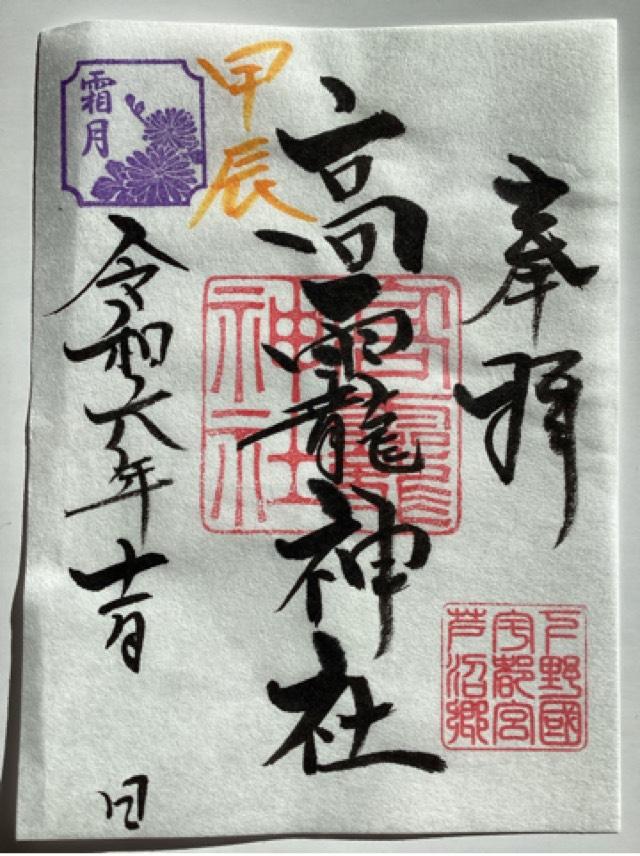 奉拝
下野國
宇都宮
芦沼郷
高龗神社
高龗
神社
甲辰
霜月
令和六年十一月 日